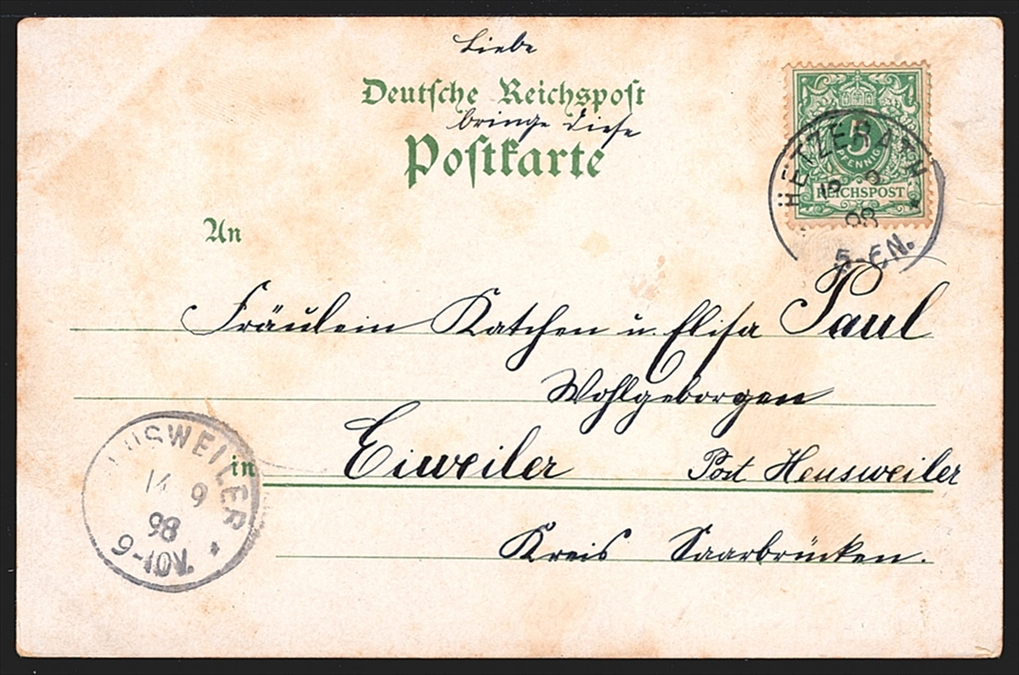 Liebe
Deutsche Reichspost
bringe diese
Postkarte
5
PFENNIG
REICHSPOST
HETZERATH
98
5-6N.
An
Fräulein Katchen u. Elisa Paul
Wohlgeborgen
in Eiweiler Post Heusweiler
Kreis Saarbrücken.
USWEILER
14 9
98
9-10V.